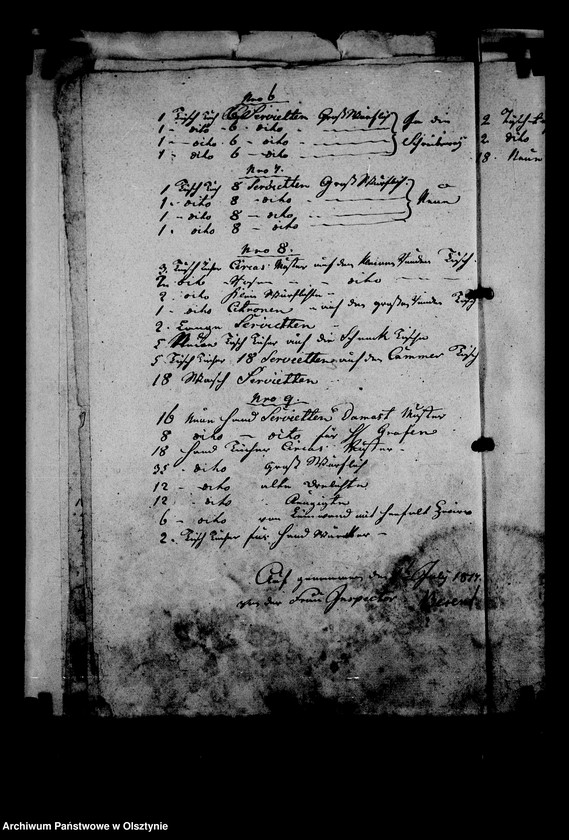 Nro 6
1 Tisch Tuch 6 Servietten Groß Würflich
1 - dito - 6 - dito
1 - dito - 6 - dito
1 - dito 6 - dito
in die
Nro 7.
1 Tisch Tuch 8 Servietten Groß Würflich
1 - dito 8 - dito
1 - dito 8 - dito
1 - dito 8 - dito
Neün
Nro 8.
3. Tisch Tücher Circas Muster auf den kleinen runden Tisch
2 dito - dito
2 dito Klein Würflichte
1 - dito Citronen - auf den großen runden Tisch
2. Lange Servietten
5 Tisch Tücher auf die Schenck Tische
5 Tisch Tücher 18 Servietten auf den Cammer Tisch
18 Wasch Servietten
Nro 9.
16 Neün Hand Servietten Damast Muster
8 dito - dito für Grafen
18 Hand Tücher Circas Muster
35 - dito Groß Würflich
12 - dito alte
12 - dito
6 - dito von Leinwand mit Zwirn
2. Tisch Tücher für Hand
Auf genommen den July 1817.
von der Frau Inspector
2 Tisch
2 dito
18 Neün
Archiwum Państwowe w Olsztynie